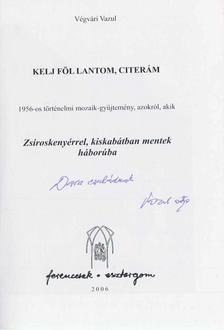 Végvári Vazul
KELJ FÖL LANTOM, CITERÁM
1956-os történelmi mozaik-gyűjtemény, azokról, akik
Zsíroskenyérrel, kiskabátban mentek
háborúba
családnak
Vazul atya
ferencesek · esztergom
2006